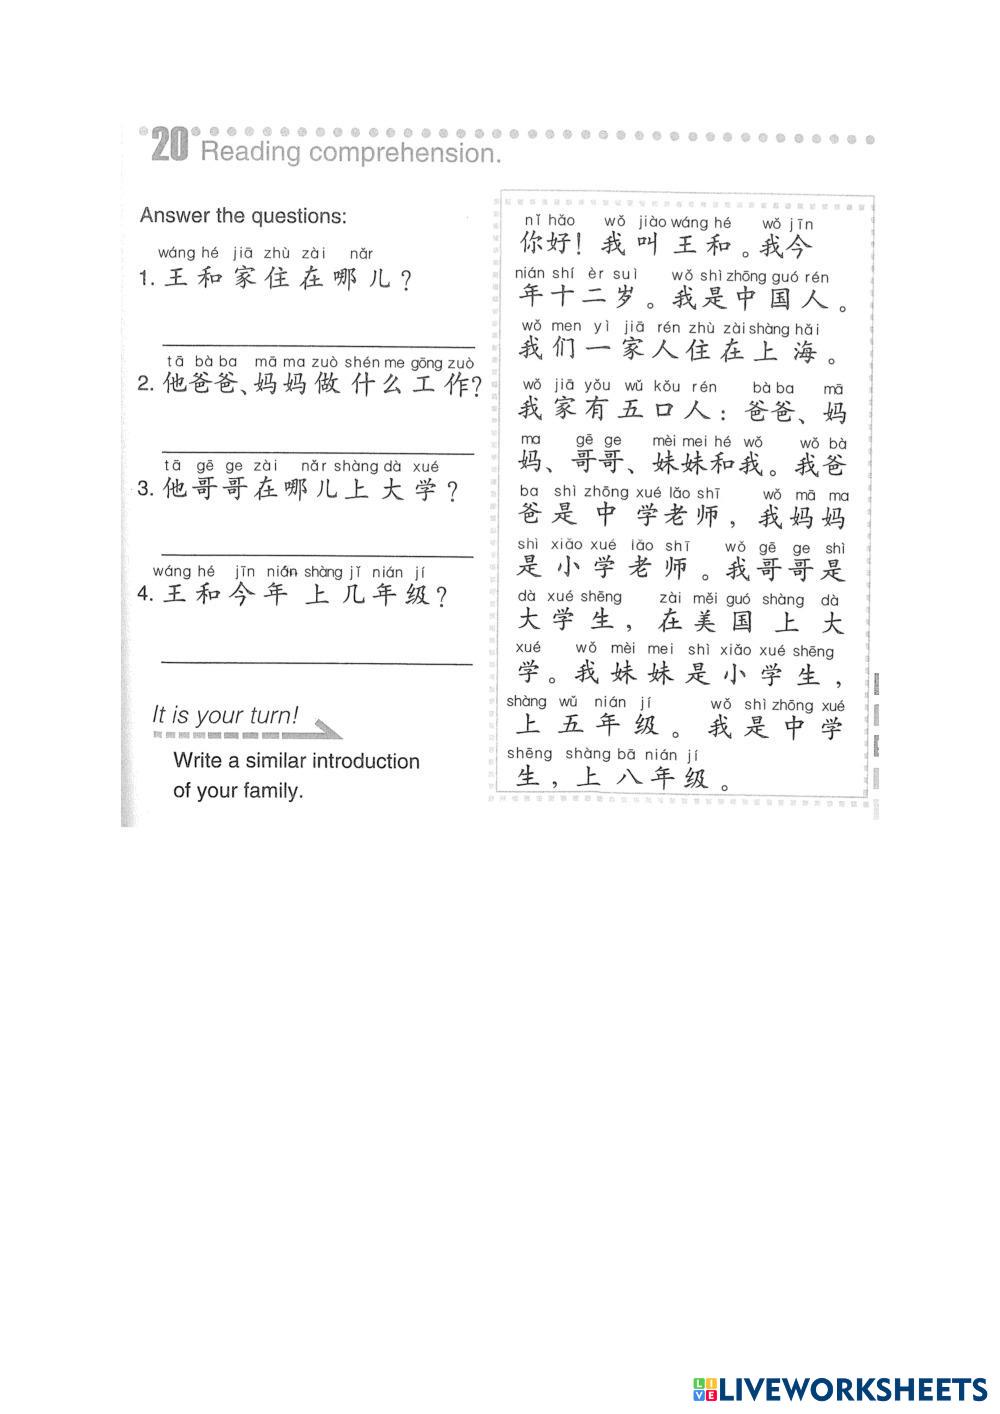 20 Reading comprehension.
Answer the questions:
wáng hé jiā zhù zài nǎr
1. 王和家住在哪儿？
tā bà ba mā ma zuò shén me gōng zuò
2. 他爸爸、妈妈做什么工作？
tā gē ge zài nǎr shàng dà xué
3. 他哥哥在哪儿上大学？
wáng hé jīn nián shàng jǐ nián jí
4. 王和今年上几年级？
It is your turn!
Write a similar introduction
of your family.
nǐ hǎo wǒ jiào wáng hé wǒ jīn
你好！我叫王和。我今
nián shí èr suì wǒ shì zhōng guó rén
年十二岁。我是中国人。
wǒ men yì jiā rén zhù zài shàng hǎi
我们一家人住在上海。
wǒ jiā yǒu wǔ kǒu rén bà ba mā
我家有五口人：爸爸、妈
ma gē ge mèi mei hé wǒ wǒ bà
妈、哥哥、妹妹和我。我爸
ba shì zhōng xué lǎo shī wǒ mā ma
爸是中学老师，我妈妈
shì xiǎo xué lǎo shī wǒ gē ge shì
是小学老师。我哥哥是
dà xué shēng zài měi guó shàng dà
大学生，在美国上大
xué wǒ mèi mei shì xiǎo xué shēng
学。我妹妹是小学生，
shàng wǔ nián jí wǒ shì zhōng xué
上五年级。我是中学
shēng shàng bā nián jí
生，上八年级。
LIVE LIVEWORKSHEETS